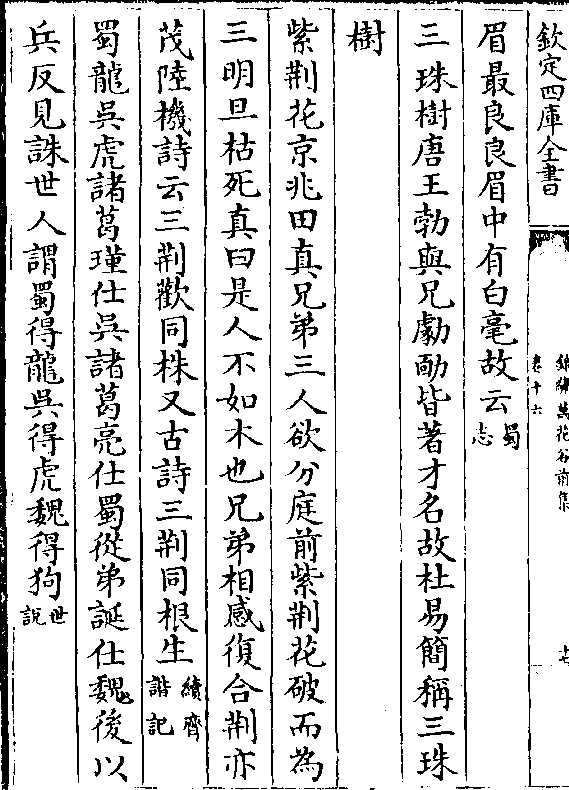 欽定四庫全書
錦繡萬花谷前集
卷十六
十七
眉最良良眉中有白毫故云蜀志
三珠樹唐王勃與兄勮勔皆著才名故杜易簡稱三珠
樹
紫荆花京兆田真兄弟三人欲分庭前紫荆花破而為
三明旦枯死真曰是人不如木也兄弟相感復合荆亦
茂陸機詩云三荆歡同株又古詩三荆同根生續齊諧記
蜀龍吳虎諸葛瑾仕吳諸葛亮仕蜀從弟誕仕魏後以
兵反見誅世人謂蜀得龍吳得虎魏得狗世說